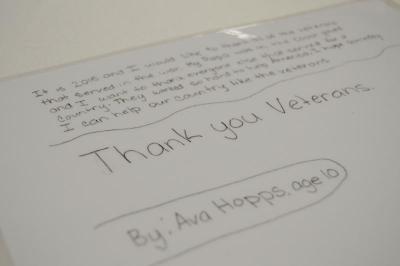 It is 2015 and I would like to thank all of the veterans
that served in the war. My Papa was in the Coast guard
and I want to thank everyone else that served for a
country. They worked so hard to help America. I hope someday
I can help our country like the veterans.
Thank you Veterans.
By: Ava Hopps, age 10